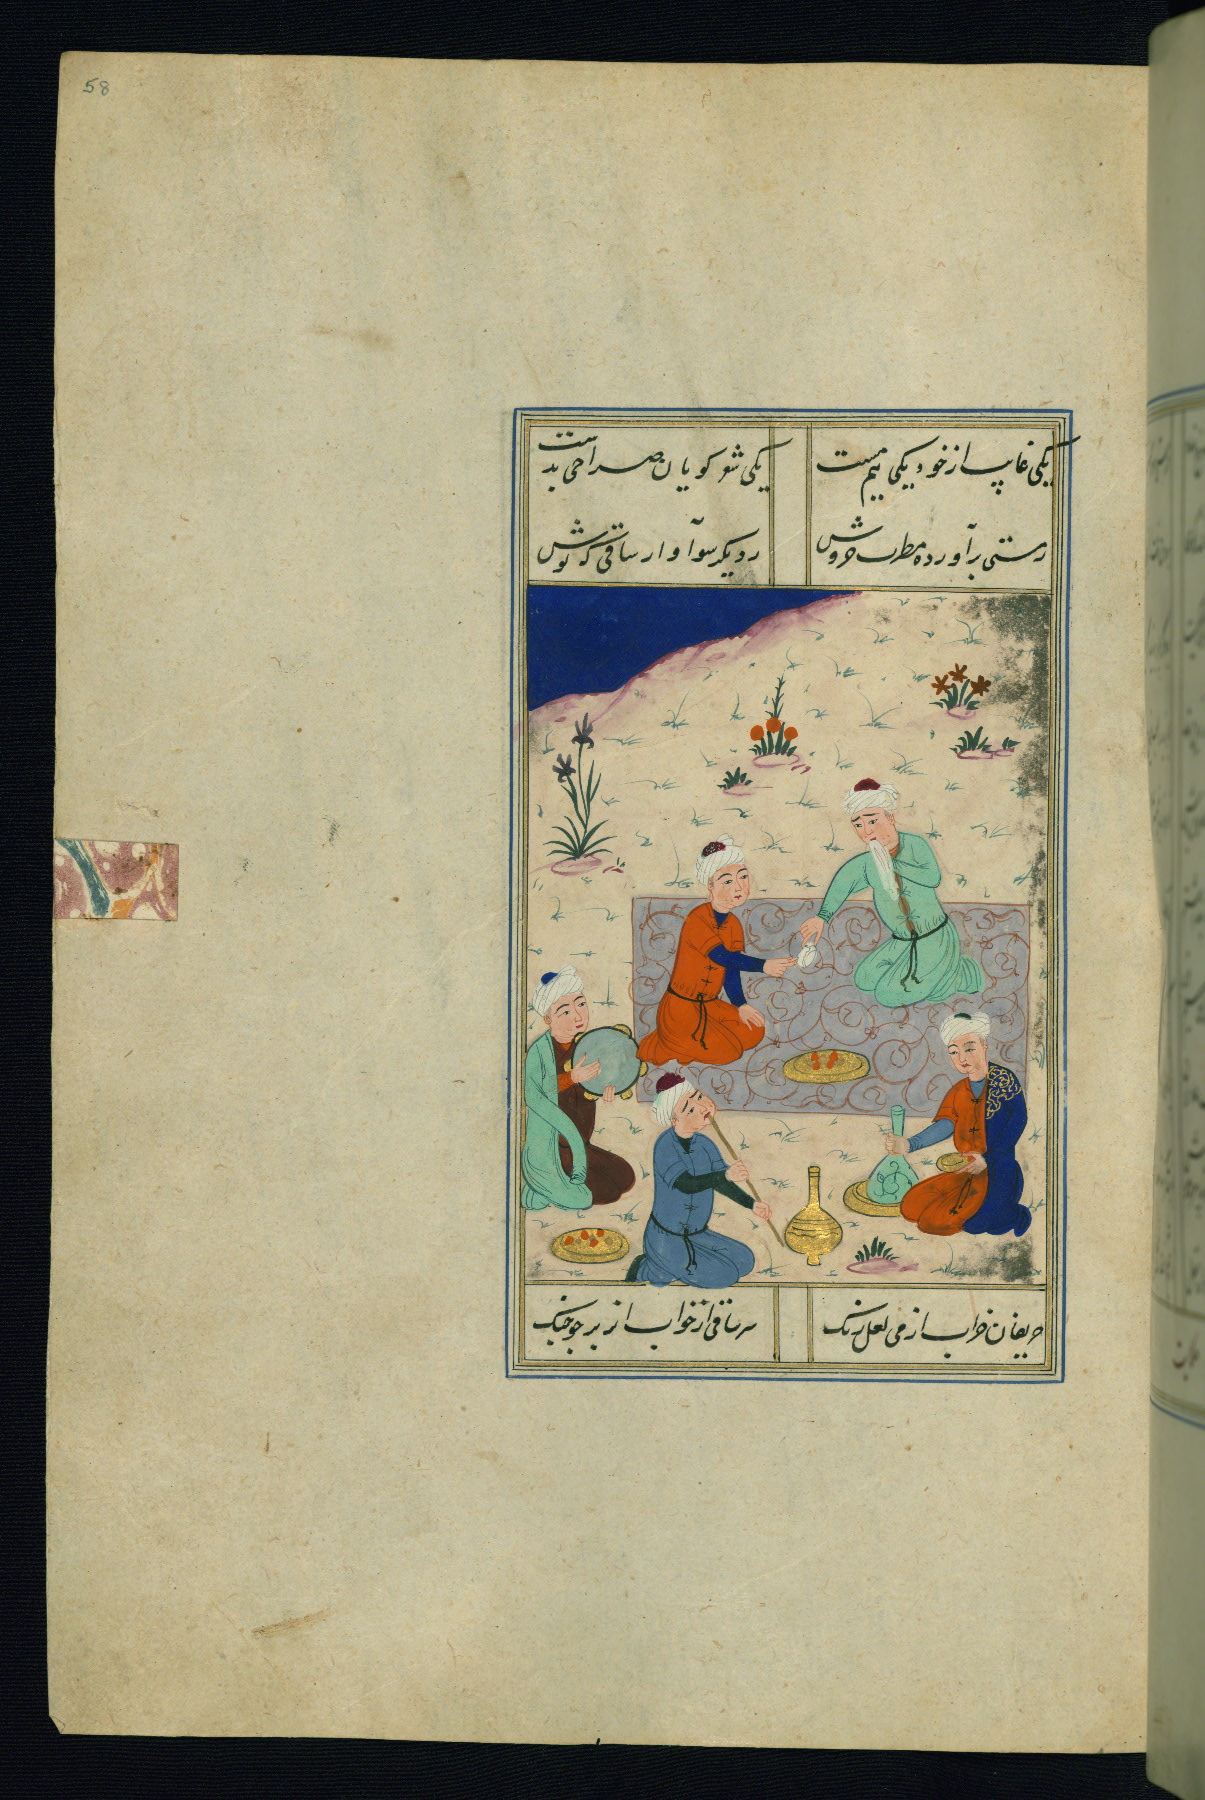 58
یکی غایب از خود یکی نیم مست یکی شعر کویان صراحی بدست
زمستی برآورده مطرب خروش زدیکر سو آواز ساقی که نوش
حریفان خراب از می لعل رنک سر ساقی از خواب در بر جو جنک